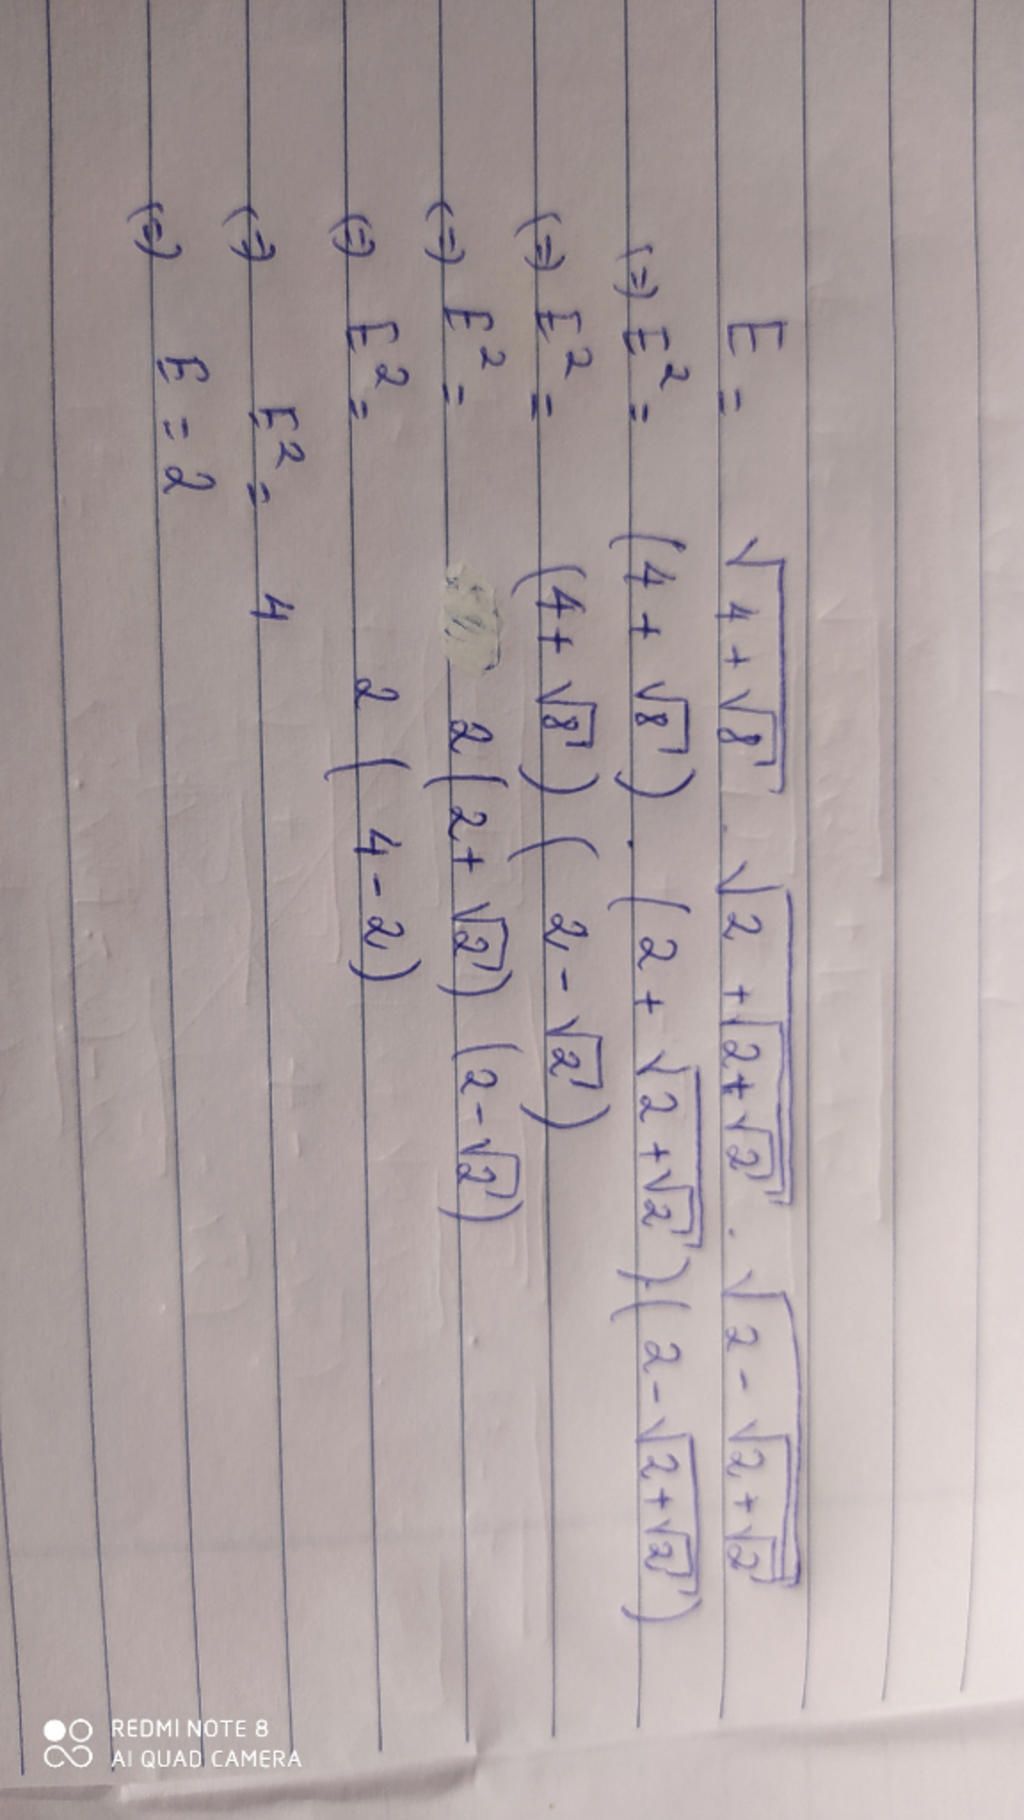 E = √(4+√8) . √(2+√(2+√2)) . √(2-√(2+√2))
(=) E² = (4+√8) . (2+√(2+√2)) (2-√(2+√2))
(=) E² = (4+√8) (2-√2)
(=) E² = 2(2+√2) (2-√2)
(=) E² = 2(4-2)
(=) E² = 4
(=) E = 2
REDMI NOTE 8
AI QUAD CAMERA